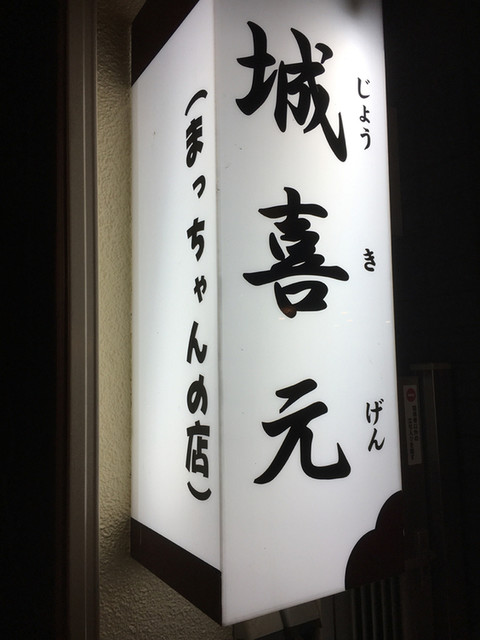 城喜元
じょうきげん
(まっちゃんの店)